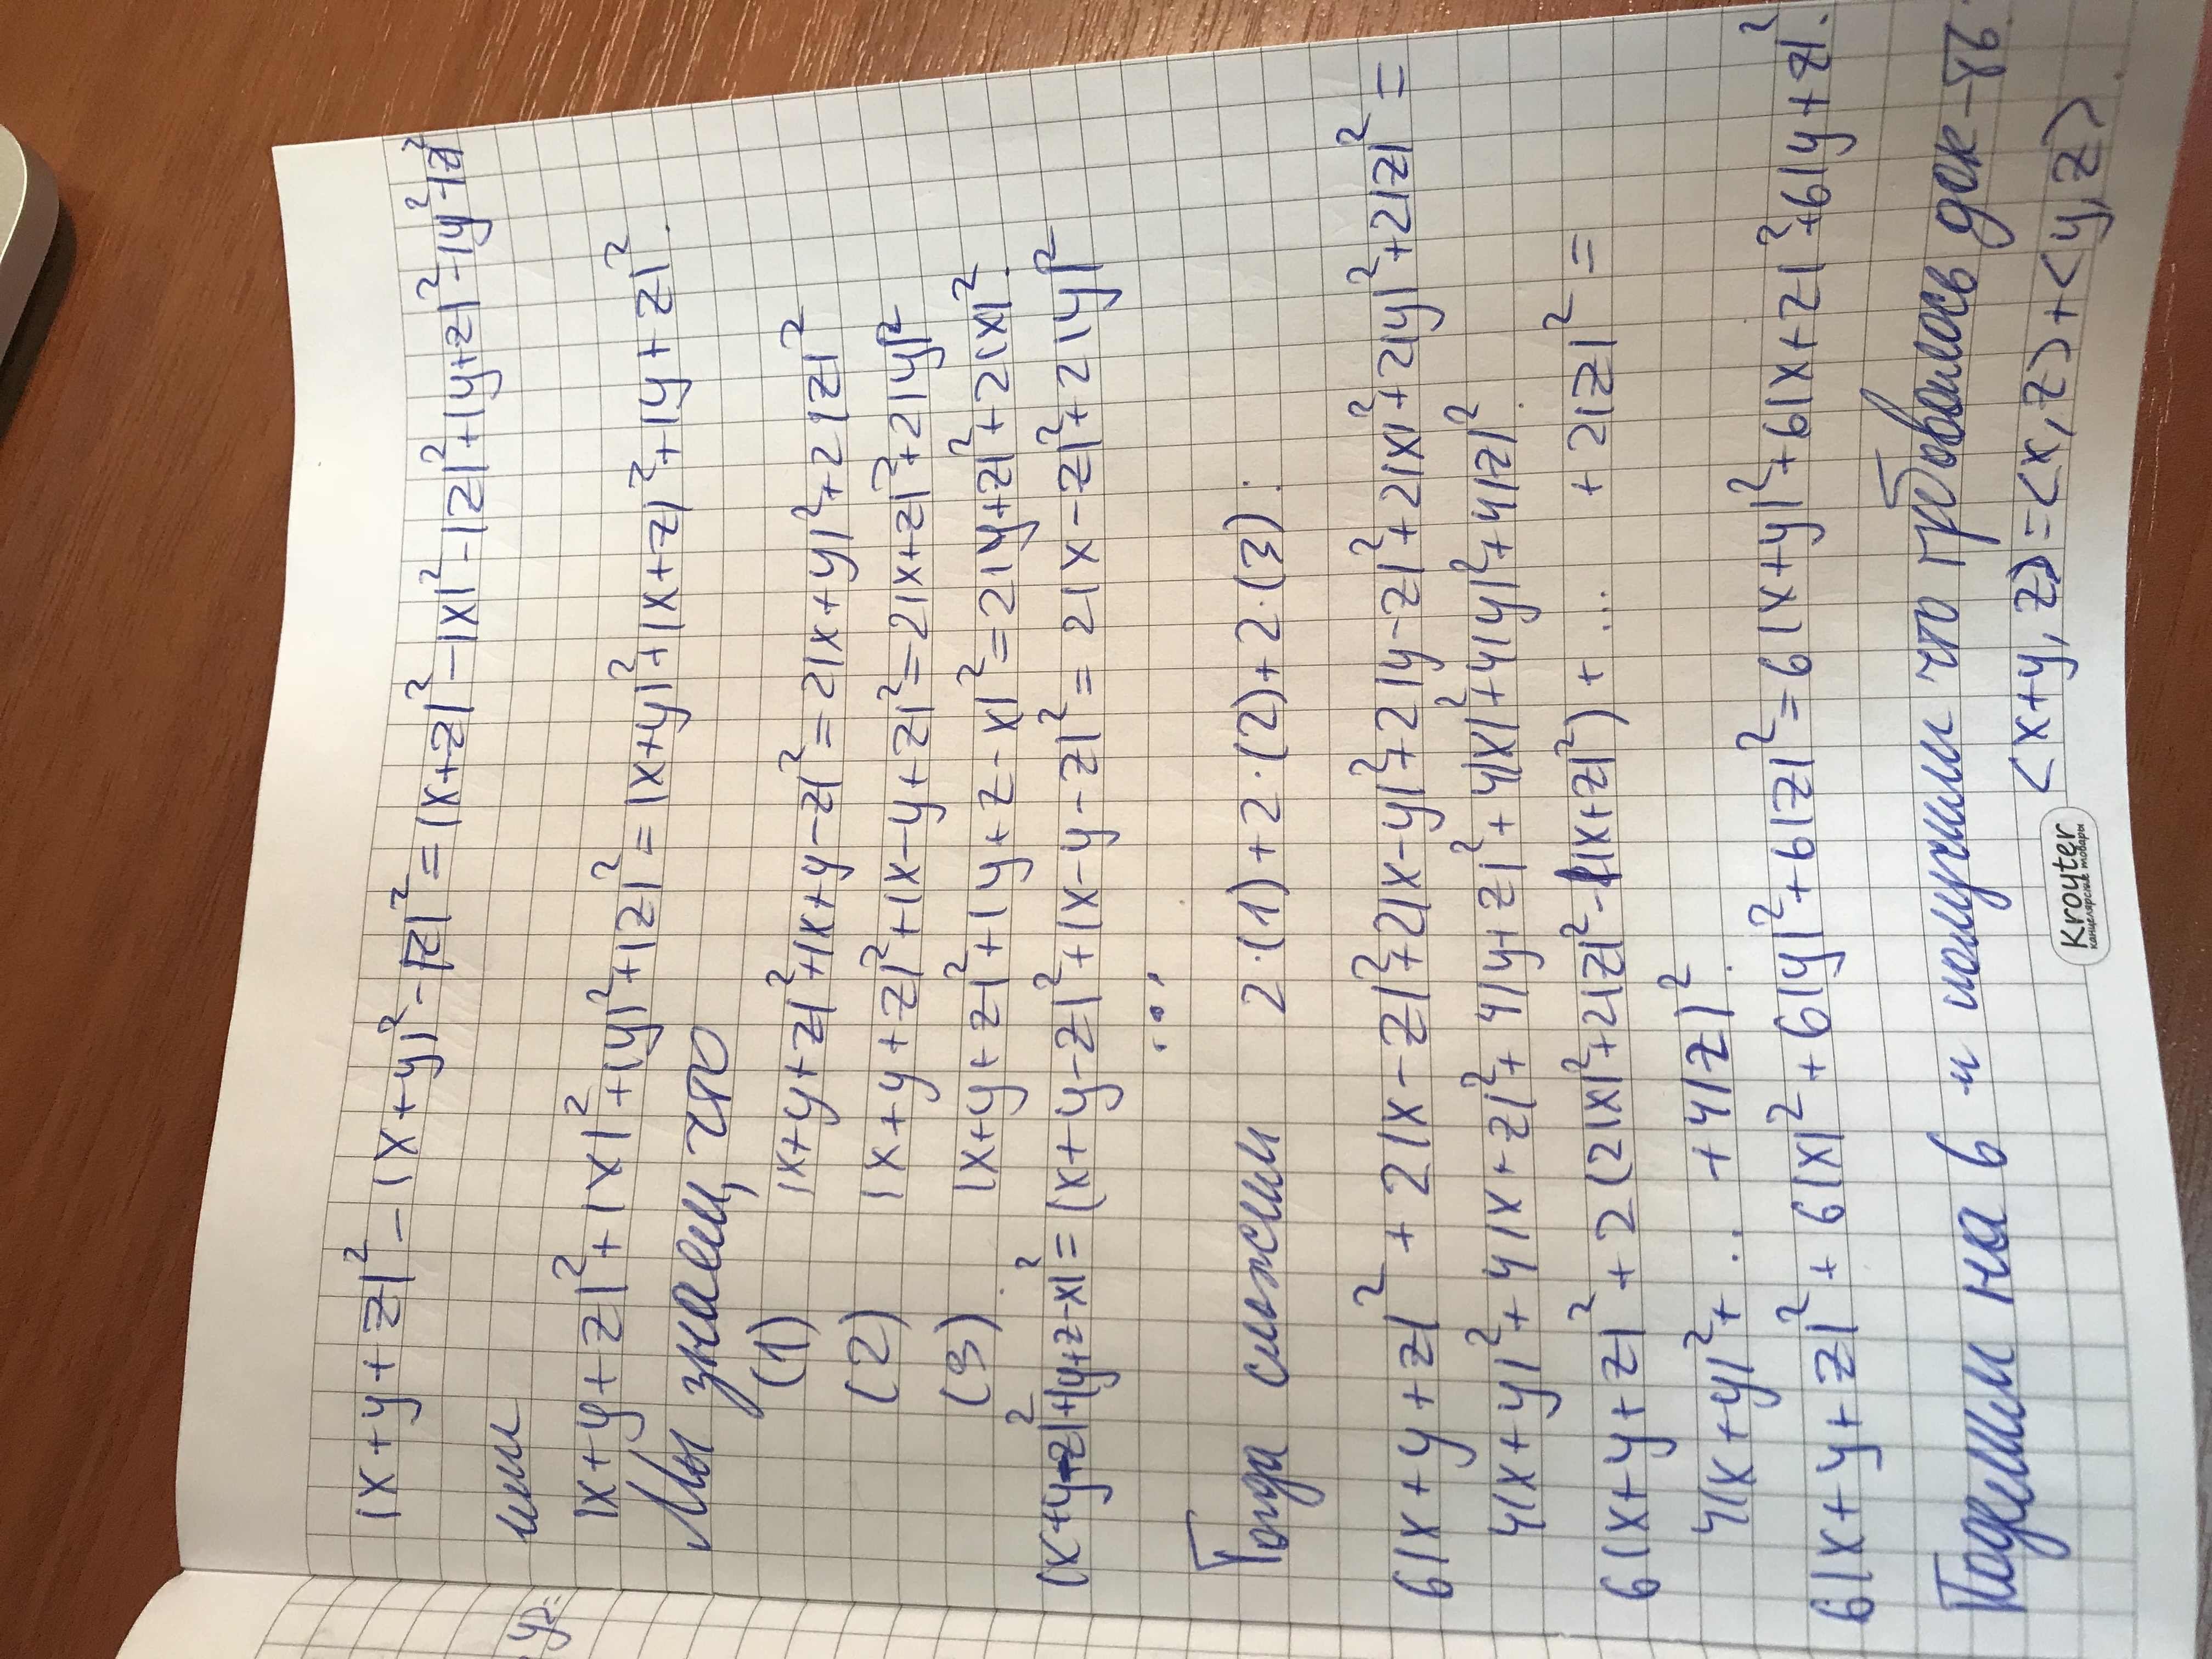 |x+y+z|² - |x+y|² - |z|² = |x+z|² - |x|² - |z|² + |y+z|² - |y|² - |z|²
или
y₂=
|x+y+z|² + |x|² + |y|² + |z|² = |x+y|² + |x+z|² + |y+z|².
Мы знаем, что
(1) |x+y+z|² + |x+y-z|² = 2|x+y|² + 2|z|²
(2) |x+y+z|² + |x-y+z|² = 2|x+z|² + 2|y|²
(3) |x+y+z|² + |y+z-x|² = 2|y+z|² + 2|x|².
|x+y-z|² + |y+z-x|² = |x+y-z|² + |x-y-z|² = 2|x-z|² + 2|y|²
...
Тогда сложим 2·(1) + 2·(2) + 2·(3):
6|x+y+z|² + 2|x-z|² + 2|x-y|² + 2|y-z|² + 2|x|² + 2|y|² + 2|z|² =
4|x+y|² + 4|x+z|² + 4|y+z|² + 4|x|² + 4|y|² + 4|z|².
6|x+y+z|² + 2(2|x|² + 2|z|² - |x+z|²) + ... + 2|z|² =
4|x+y|² + ... + 4|z|².
6|x+y+z|² + 6|x|² + 6|y|² + 6|z|² = 6|x+y|² + 6|x+z|² + 6|y+z|².
Поделим на 6 и получили что требовалось док-ть.
<x+y, z> = <x, z> + <y, z>.
Kroyter
канцелярские товары